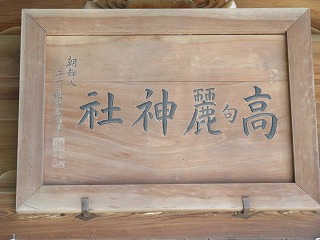 高句麗神社
朝鮮人